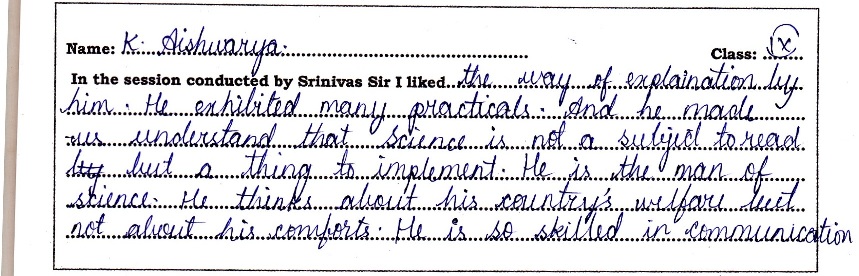 Name: K. Aishwarya. Class: IX
In the session conducted by Srinivas Sir I liked the way of explaination by
him. He exhibited many practicals. And he made
us understand that science is not a subject to read
but a thing to implement. He is the man of
science. He thinks about his country's welfare but
not about his comforts. He is so skilled in communication